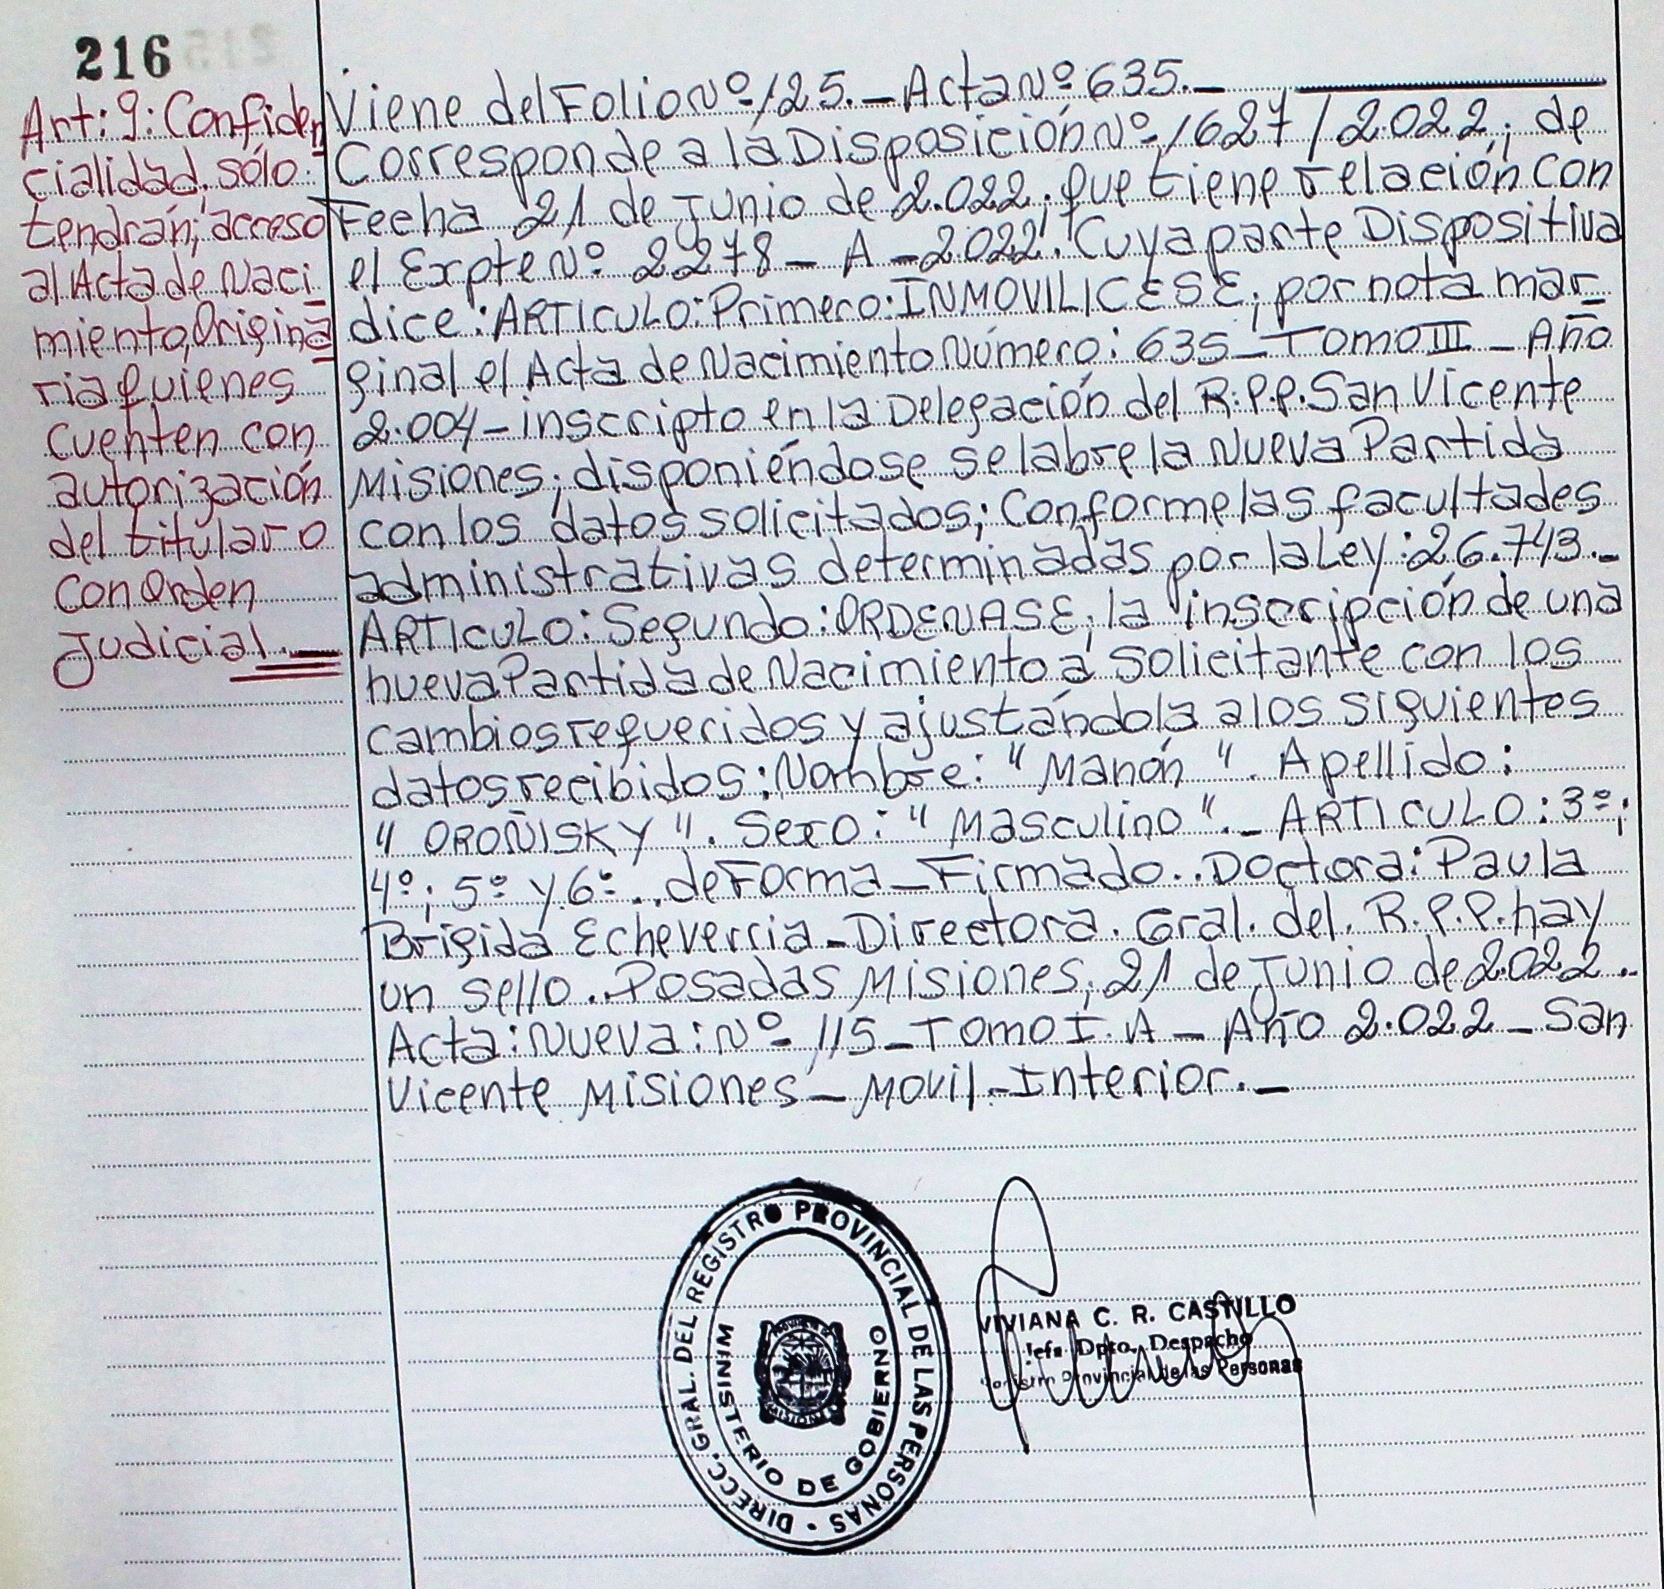 216
Art: 9: Confiden
cialidad, sólo.
tendrán; acceso
al Acta de Naci_
miento, Origina
ria quienes
cuenten con
autorización
del titular o
Con Orden
Judicial._
Viene del Folio Nº 125._ Acta Nº 635._
Corresponde a la Disposición Nº 1627 / 2.022; de
Fecha 21 de Junio de 2.022; que tiene relación con
el Expte Nº 2278 _ A _ 2022. Cuya parte Dispositiva
dice: ARTICULO: Primero: INMOVILICESE; por nota mar_
ginal el Acta de Nacimiento Número: 635 _ Tomo III _ Año
2.004 _ inscripto en la Delegación del R.P.P. San Vicente
Misiones; disponiéndose se labre la Nueva Partida
con los datos solicitados; Conforme las facultades
administrativas determinadas por la Ley: 26.743._
ARTICULO: Segundo: ORDENASE; la inscripción de una
nueva Partida de Nacimiento a solicitante con los
cambios requeridos y ajustándola a los siguientes
datos recibidos: Nombre: "Manón". Apellido:
"OROÑISKY". Sexo: "Masculino"._ ARTICULO: 3º;
4º; 5º y 6º.. de Forma _ Firmado.. Doctora: Paula
Brigida Echeverria _ Directora. Gral. del. R.P.P. hay
un sello. Posadas Misiones; 21 de Junio de 2.022..
Acta: Nueva: Nº 115 _ Tomo I. A _ Año 2.022 _ San
Vicente Misiones _ Movil _ Interior._
DIRECC. GRAL. DEL REGISTRO PROVINCIAL DE LAS PERSONAS
MINISTERIO DE GOBIERNO
MISIONES
VIVIANA C. R. CASTILLO
Jefa Dpto. Despacho
Registro Provincial de las Personas